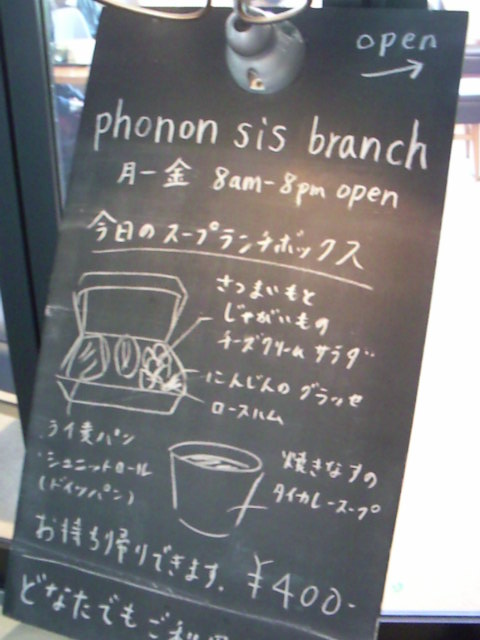 open
phonon sis branch
月－金 8am-8pm open
今日のスープランチボックス
さつまいもと
じゃがいもの
チーズクリームサラダ
にんじんのグラッセ
ロースハム
・ライ麦パン
・シュニットロール
(ドイツパン)
焼きなすの
タイカレースープ
お持ち帰りできます。¥400-
どなたでもご利用